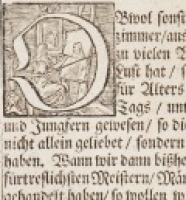 OBwol sonst
zimmer/aus
zu vielen T
Lust hat / s
für Alters
Tags / unn
und Jungfern gewesen/ so die
nicht allein geliebet / sondern
haben. Wann wir dann bißhe
fürtrefflichsten Meistern/ Män
gehandelt haben/ so wollen w